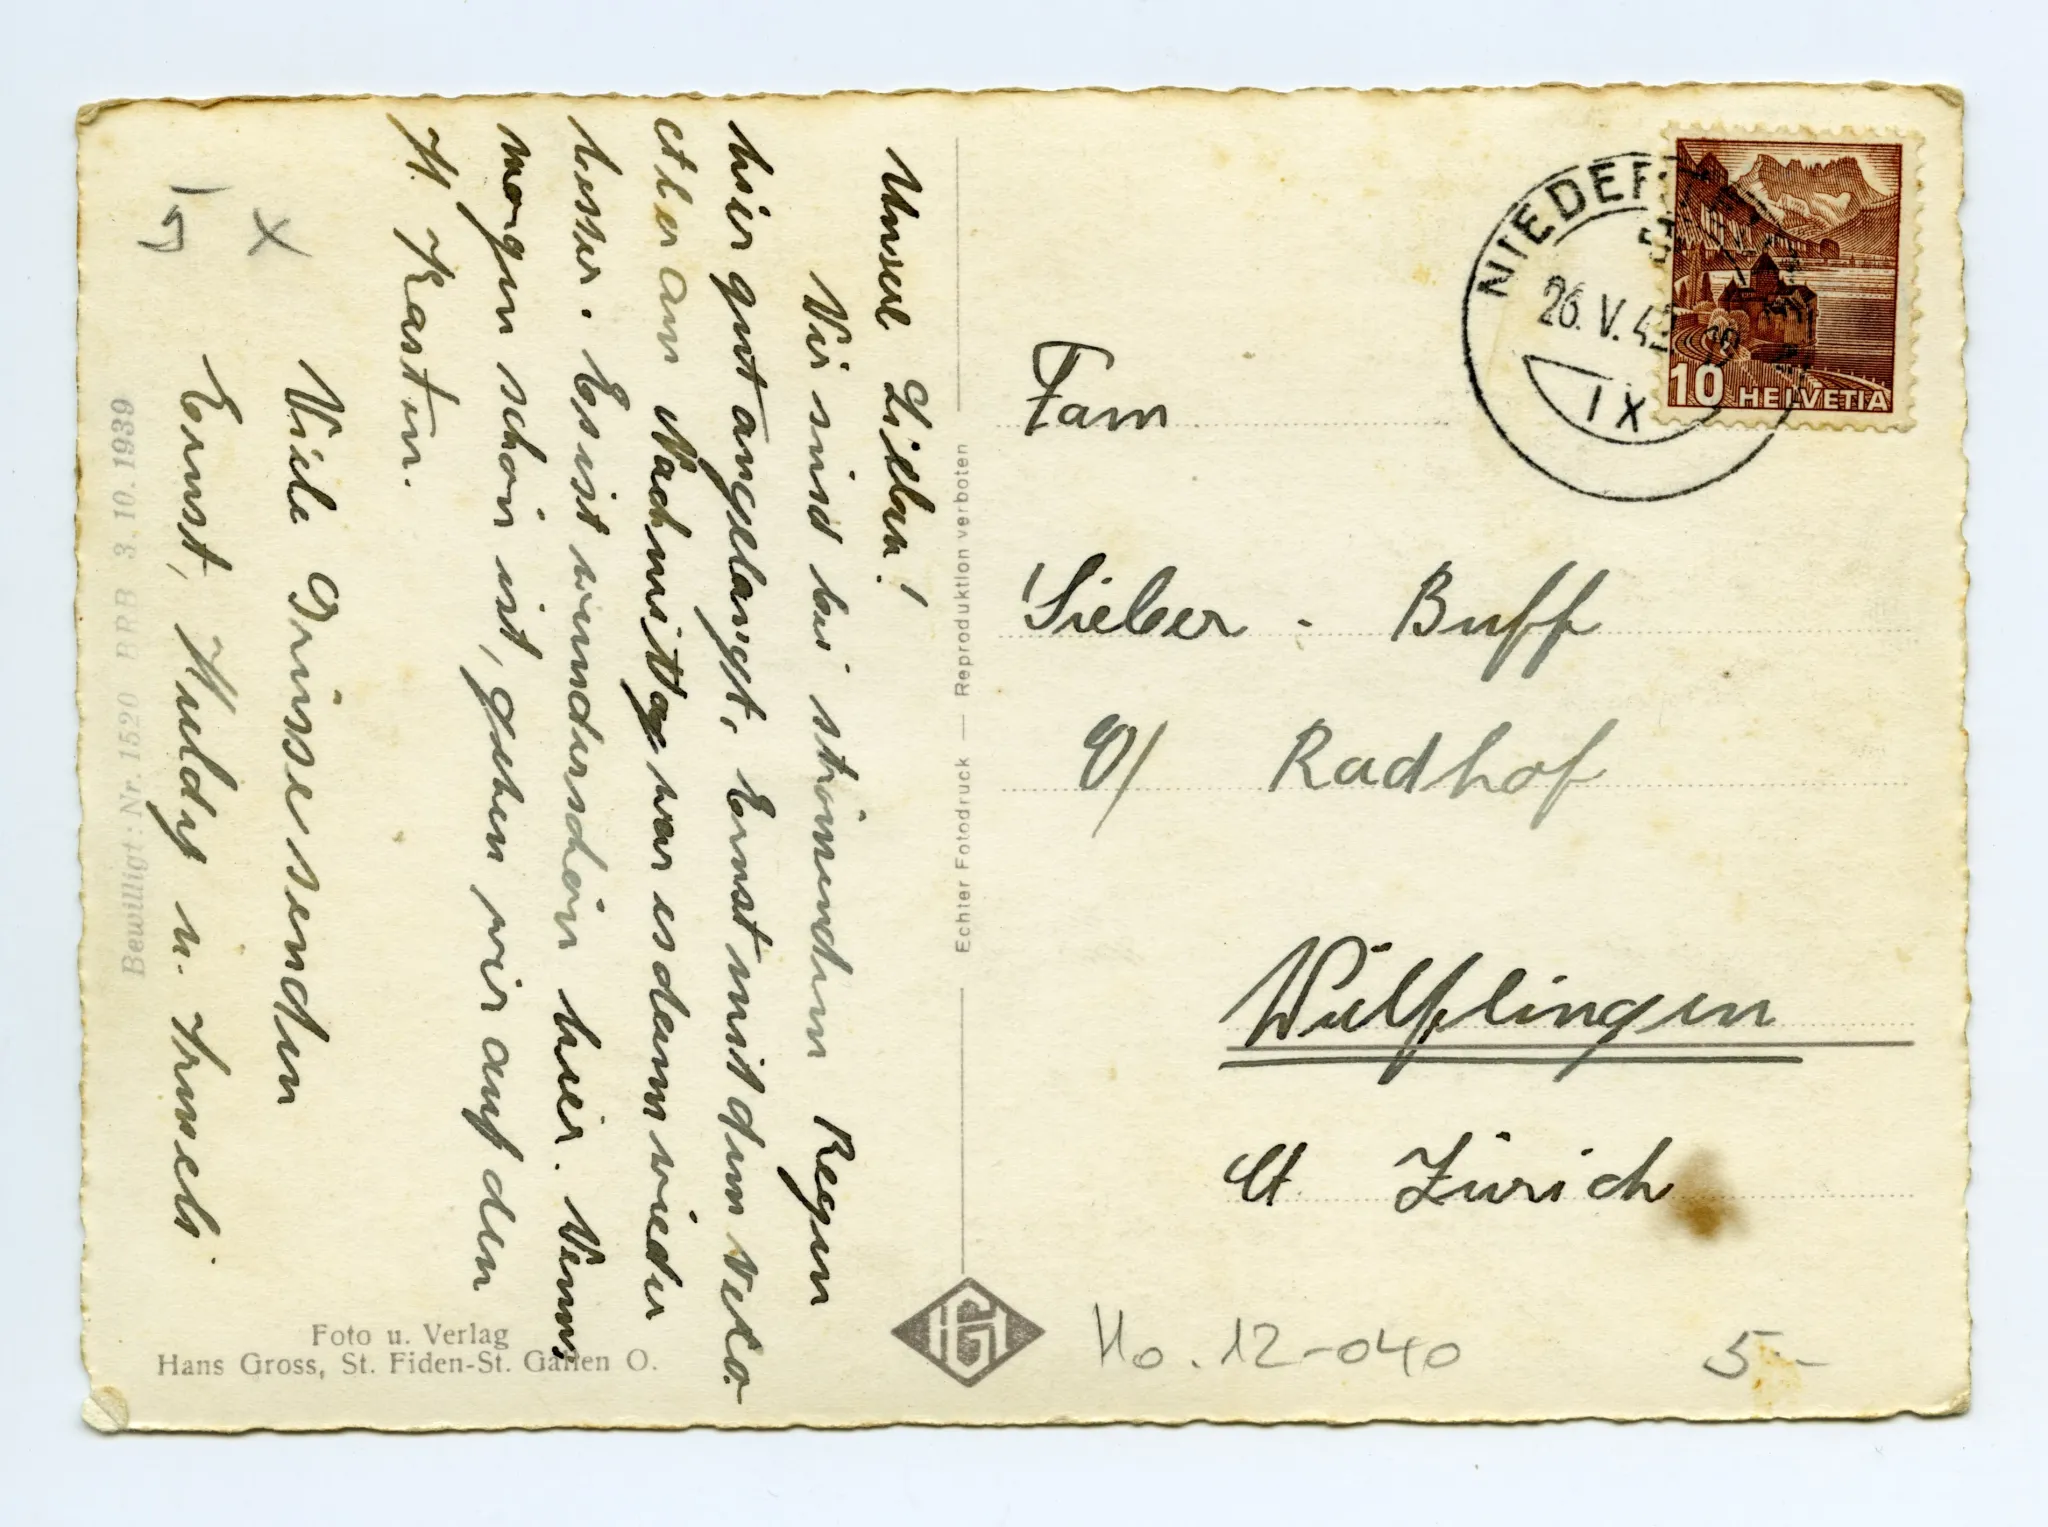 Unsere Lieben!
Wir sind bei strömendem Regen
hier gut angelangt, Ernst mit dem Velo.
Aber am Nachmittag war es dann wieder
besser. Es ist wunderschön hier. Wenns
morgen schön ist, gehen wir auf den
H. Kasten.
Viele Grüsse senden
Ernst, Huldy u. Irmeli
Bewilligt: Nr. 1520 BRB 3. 10. 1939
Foto u. Verlag
Hans Gross, St. Fiden-St. Gallen O.
Echter Fotodruck — Reproduktion verboten
HG
NIEDER
26. V. 42
IX
10 HELVETIA
Fam
Sieber - Buff
Radhof
Wülflingen
Ct. Zürich
Ho. 12-040
5.-
X